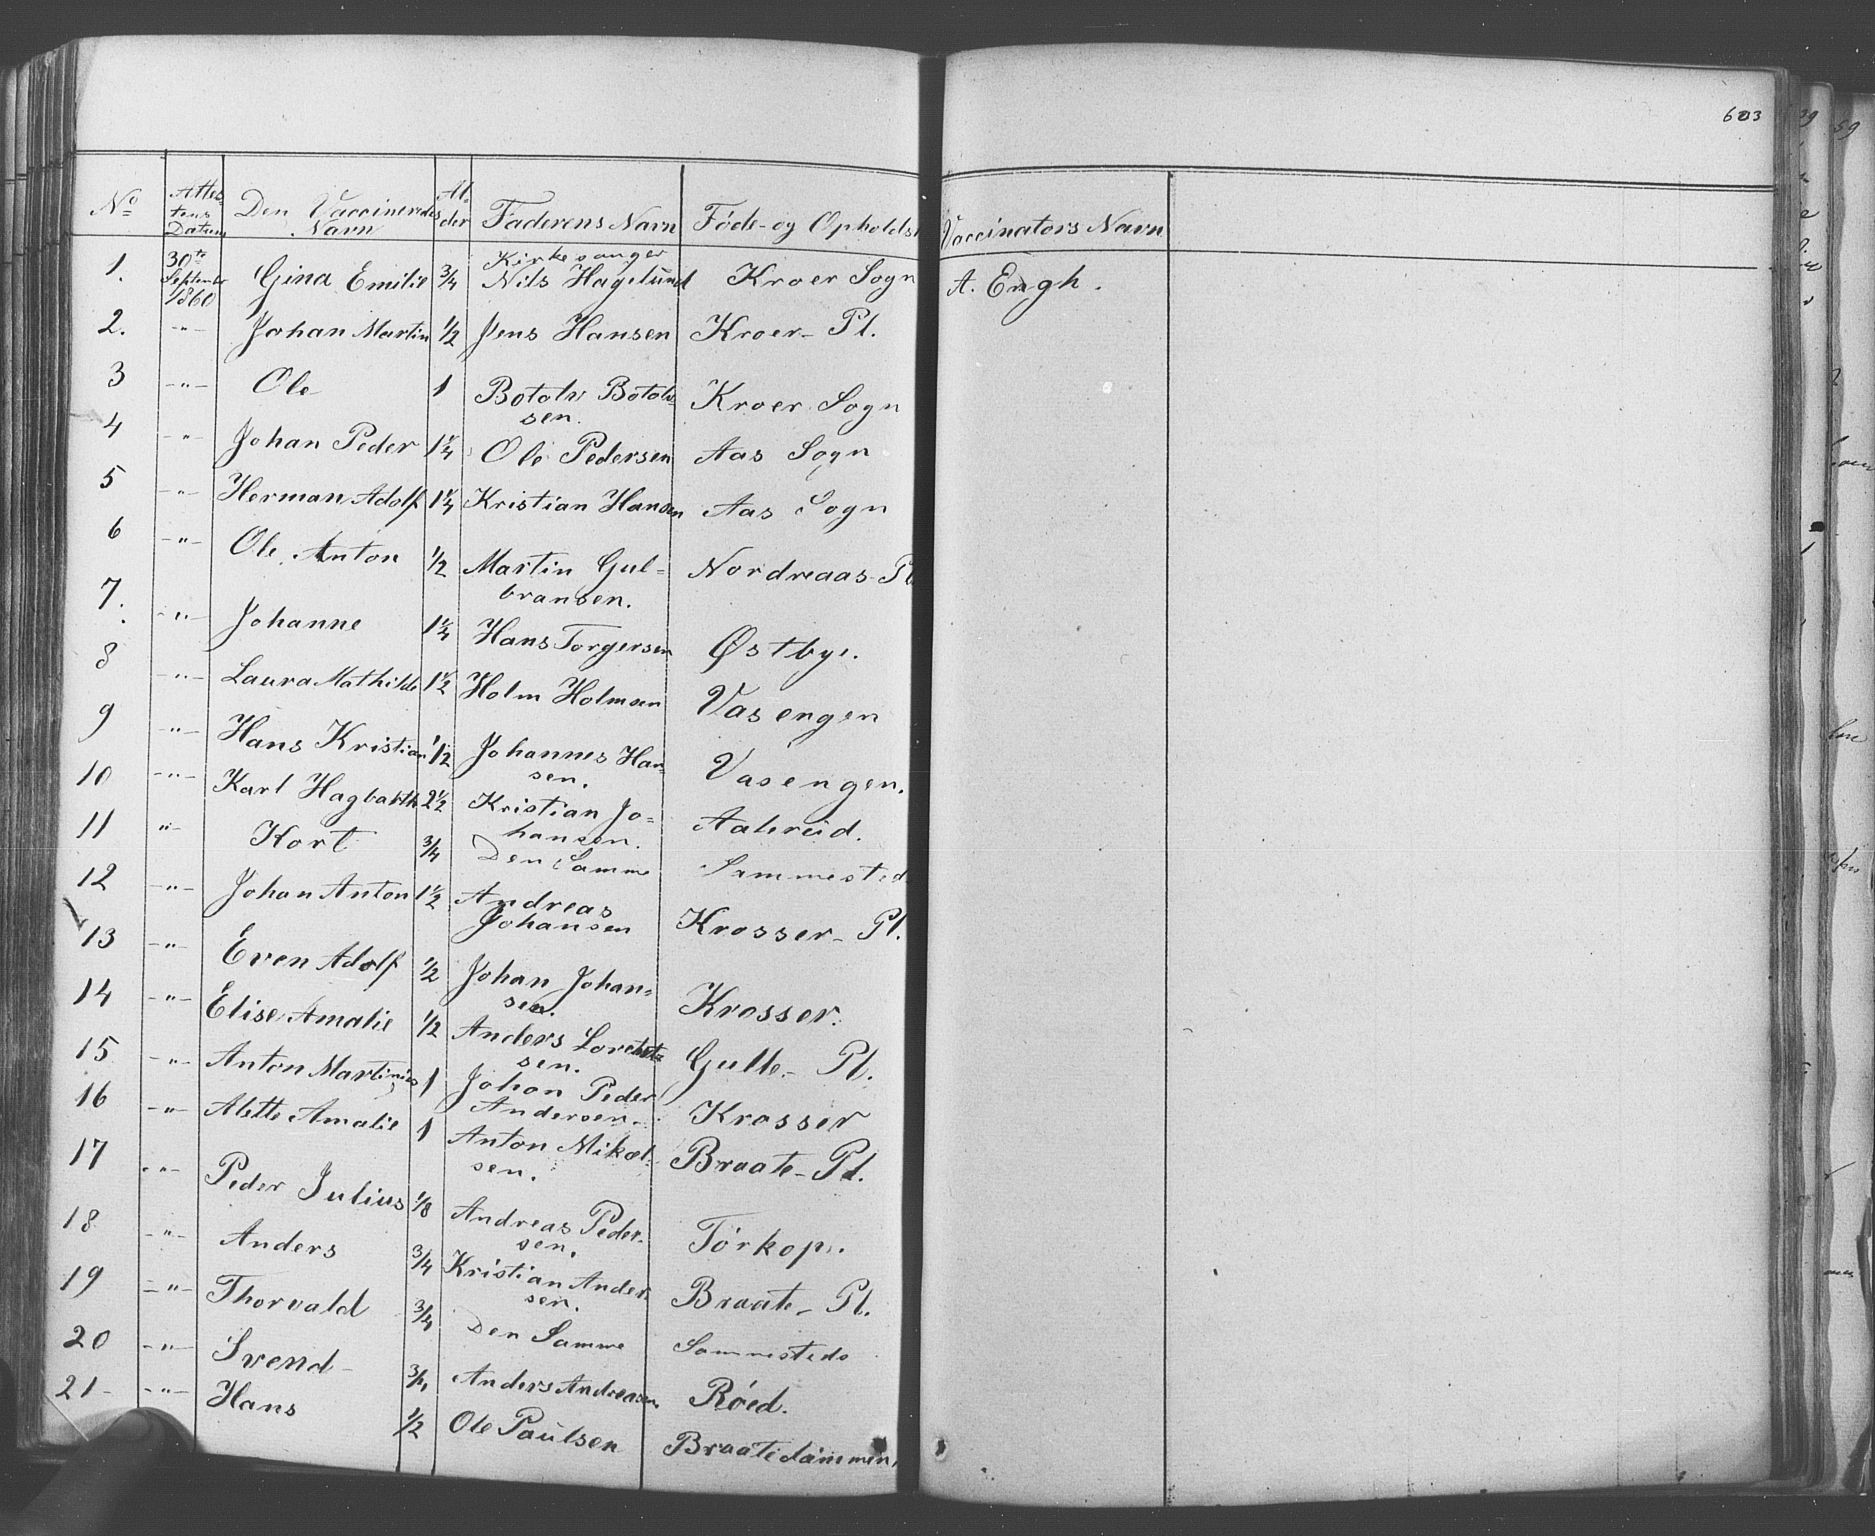 603
No Attes- Den Vaccineredes Al- Faderens Navn Føde- og Opholdst Vaccinators Navn
tens Navn der
Datum
1. 30te September 1860 Gina Emilie 3/4 Kirkesanger Nils Hagelund Kroer Sogn A. Engh.
2. -"- Johan Martin 1/2 Jens Hansen Kroer- Pl.
3 -"- Ole 1 Botolv Botolv-
sen. Kroer Sogn
4 -"- Johan Peder 1 1/4 Ole Pedersen Aas Sogn
5 -"- Herman Adolf 1 1/4 Kristian Hansen Aas Sogn
6 -"- Ole Anton 1/2 Martin Gul-
bransen. Nordraas- Pl
7. -"- Johanne 1 1/4 Hans Torgersen Østbye.
8 -"- Laura Mathilde 1 1/2 Holm Holmsen Vasengen
9 -"- Hans Kristian 1/2 Johannes Han-
sen. Vasengen.
10 -"- Karl Hagbarth 2 1/2 Kristian Jo-
hansen. Aalereid.
11 "- Kort 3/4 Den Samme Sammested
12 -"- Johan Anton 1 1/2 Andreas
Johansen Krosser- Pl.
13 -"- Even Adolf 1/2 Johan Johan-
sen. Krosser.
14 -"- Elise Amalie 1/2 Anders
sen. Gulle- Pl.
15 -"- Anton Martinius 1 Johan Peder
Andersen- Krosser
16 -"- Alette Amalie 1 Anton Mikal-
sen. Braate- Pl.
17 -"- Peder Julius 1/8 Andreas Peder-
sen. Tørkop.
18 -"- Anders 3/4 Kristian Ander-
sen. Braate- Pl.
19 -"- Thorvald 3/4 Den Samme Sammesteds
20 -"- Svend- 3/4 Anders Andreasen Røed.
21- -"- Hans 1/2 Ole Paulsen Braatedammen,